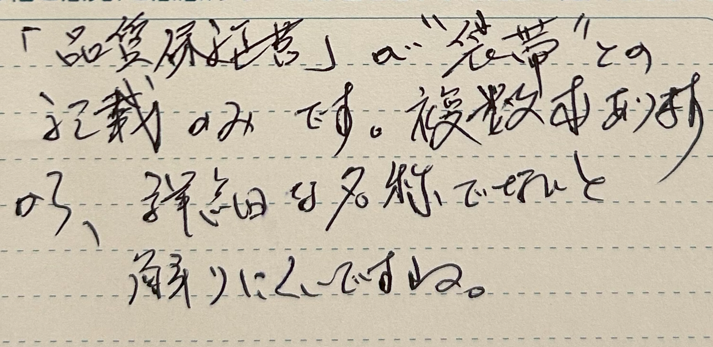 「品質保証書」が"袋帯"との
記載のみです。複数本あります
から、詳細な名称でないと
解りにくいですね。